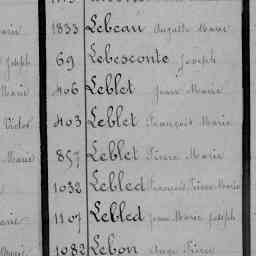 1833 Lebeau Auguste Marie
Joseph 69 Lebesconte Joseph
Marie 406 Leblet Jean Marie
Victor 403 Leblet François Marie
Marie 857 Leblet Pierre Marie
1032 Lebled François Pierre Marie
Marie 1107 Lebled Jean Marie Joseph
Marie 1082 Lebon Ange Pierre